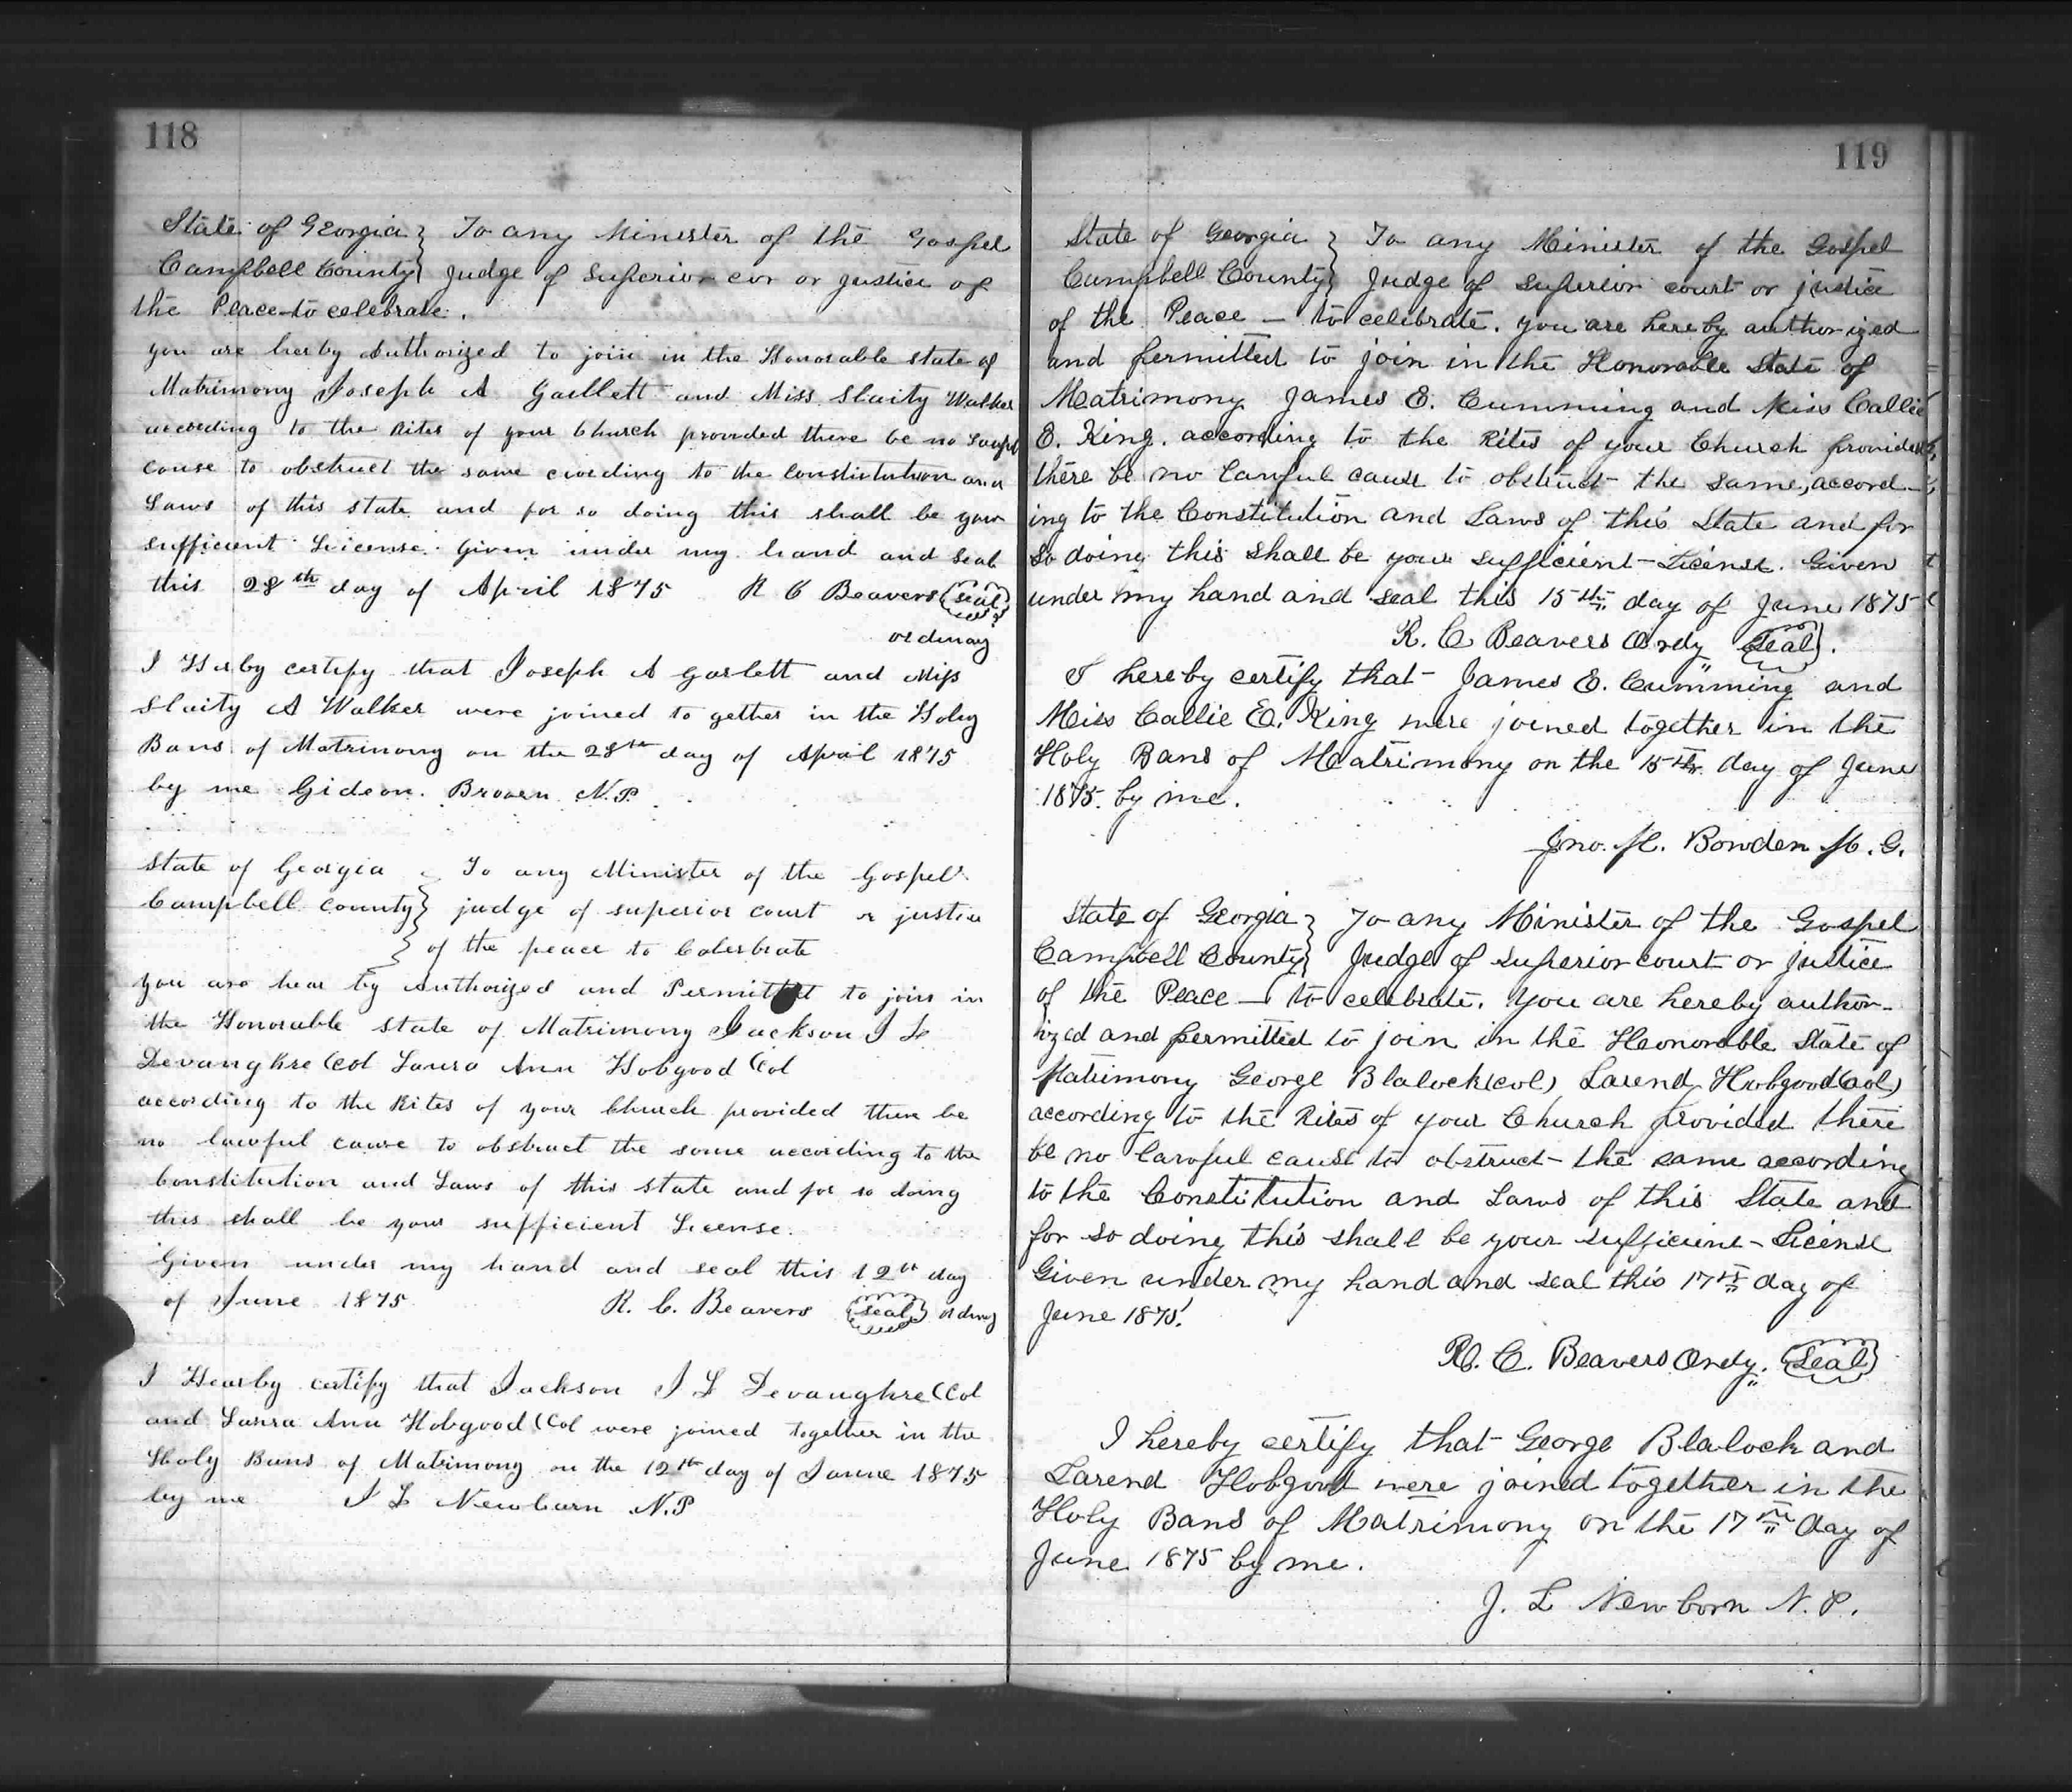 118
State of Georgia } To any Minister of the Gospel
Campbell County } Judge of Superior cor or Justice of
the Peace - to celebrate.
you are herby Authorized to join in the Honorable state of
Matrimony Joseph A Gaillett and Miss Slaity Walker
according to the Rites of your Church provided there be no Lawful
cause to obstruct the same crording to the Constitution and
Laws of this state and for so doing this shall be your
sufficient License. Given under my hand and seal
this 28th day of April 1875 R C Beavers (seal)
ordinay
I Herby certify that Joseph A Garlett and Miss
Slaity A Walker were joined to gether in the Holy
Bans of Matrimony on the 28th day of April 1875
by me Gideon. Brown N.P.
State of Georgia } To any Minister of the Gospel
Campbell County } judge of superior court or justice
} of the peace to Celesbrate
you are hear by Authorized and Permittet to join in
the Honorable state of Matrimony Jackson J L
Devanghre (Col Laura Ann Hobgood (Col
according to the Rites of your Church provided there be
no lawful cause to obstruct the same according to the
Constitution and Laws of this state and for so doing
this shall be your sufficient License.
Given under my hand and seal this 12th day
of June 1875 R. C. Beavers (seal) ordiny
I Hearby certify that Jackson J L Devanghre (Col
and Laura Ann Hobgood (Col were joined together in the
Holy Bans of Matrimony on the 12th day of June 1875
by me J L Newburn N.P
119
State of Georgia } To any Minister of the Gospel
Campbell County } Judge of Superior court or justice
of the Peace — to celebrate. you are here by authorized
and permitted to join in the Honorable State of
Matrimony James E. Cumming and Miss Callie
E. King. according to the Rites of your Church provided
there be no Lawful cause to obstruct the same, accord-
ing to the Constitution and Laws of this State and for
so doing this shall be your sufficient License. Given
under my hand and seal this 15th day of June 1875
R. C Beavers Ordy (Seal).
I hereby certify that James E. Cumming and
Miss Callie E. King were joined together in the
Holy Bans of Matrimony on the 15th day of June
1875. by me.
Jno. M. Bowden M. G.
State of Georgia } To any Minister of the Gospel
Campbell County } Judge of Superior court or justice
of the Peace — to celebrate. You are hereby author-
ized and permitted to join in the Heonorable State of
Matrimony George Blalock (col) Larend Hobgood (col)
according to the Rites of your Church provided there
be no lawful cause to obstruct the same according
to the Constitution and Laws of this State and
for so doing this shall be your sufficient License
Given under my hand and seal this 17th day of
June 1875.
R. C. Beavers Ordy. (Seal)
I hereby certify that George Blalock and
Larend Hobgood were joined together in the
Holy Bans of Matrimony on the 17th day of
June 1875 by me.
J. L Newborn N. P.